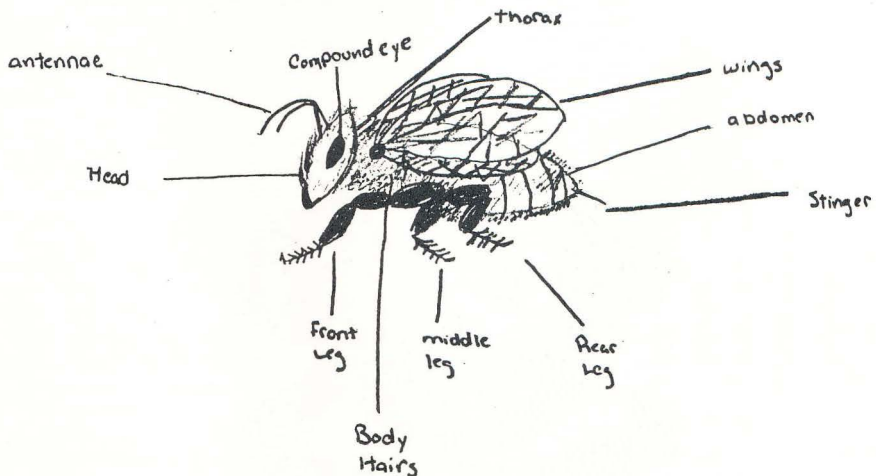 thorax
Compound eye
antennae
wings
abdomen
Head
Stinger
Front
Leg
middle
leg
Rear
Leg
Body
Hairs